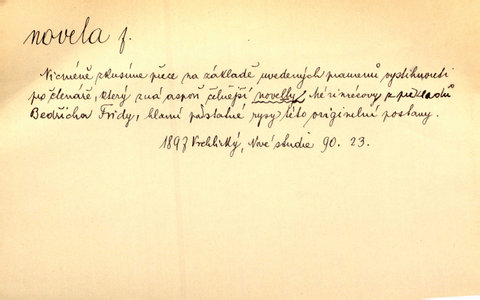 novela f.
Nicméně zkusíme přece na základě uvedených pramenů vystihnouti
pro čtenáře, který zná aspoň četnější novelly Mériméeovy z překladů
Bedřicha Frídy, hlavní podstatné rysy této originelní postavy.
1897 Vrchlický, Nové studie 90. 23.